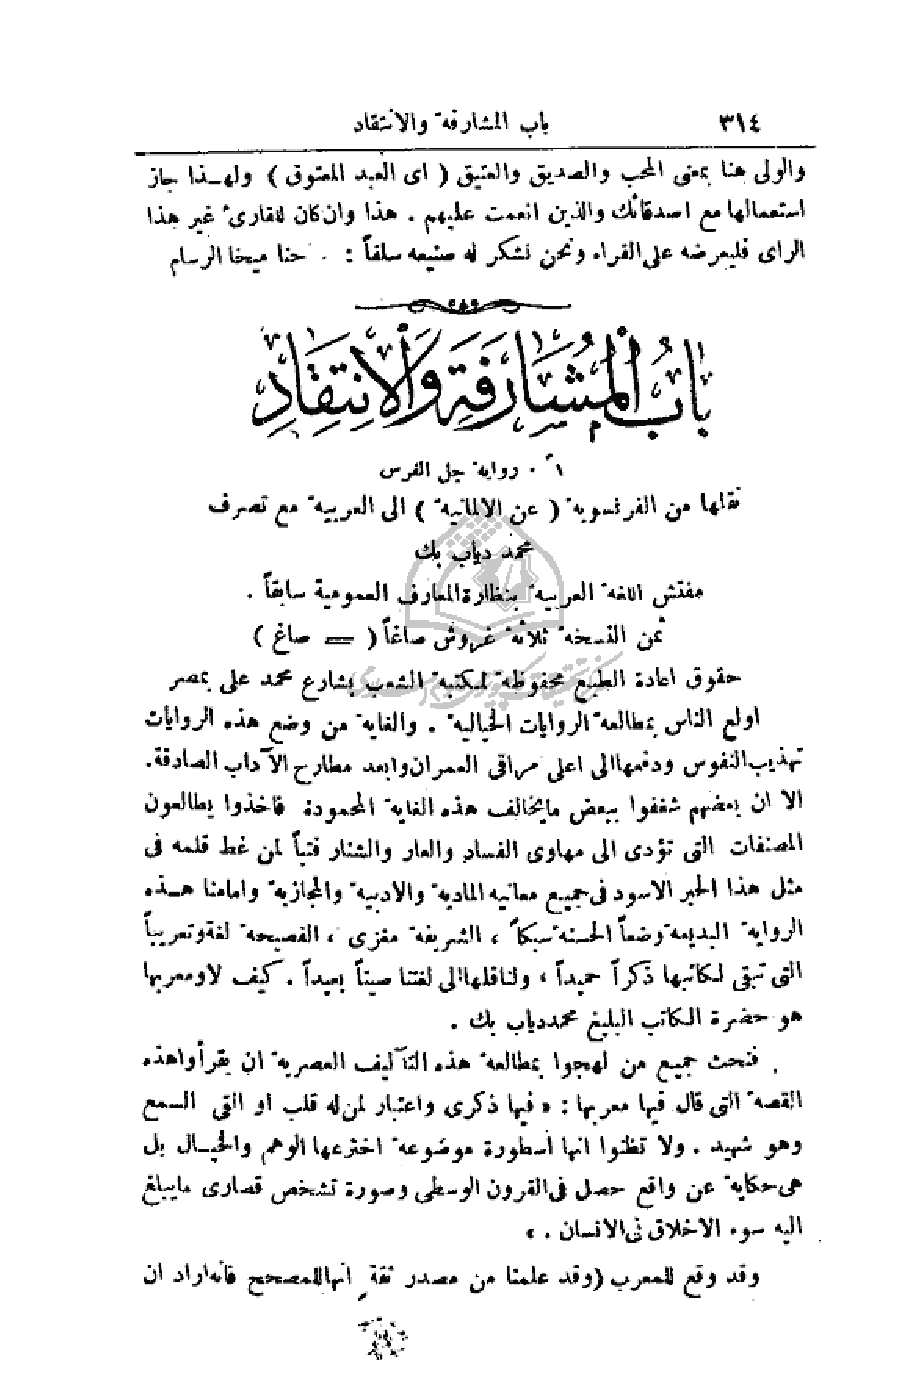 ٣١٤ باب المشارفة والانتقاد
والولى هنا بمعنى المحب والصديق والعتيق ( اى العبد المعتوق ) ولهـذا جاز
استعمالها مع اصدقائك والذين انعمت عليهم . هذا وان كان للقارئ غير هذا
الراى فليعرضه على القراء ونحن نشكر له صنيعه سلفاً : حنا ميخا الرسام
بَابُ الْمُشَارَفَةِ وَالْاِنْتِقَادِ
١ . رواية جل الفرس
نقلها من الفرنسوية ( عن الالمانية ) الى العربية مع تصرف
محمد دياب بك
مفتش اللغة العربية بنظارة المعارف العمومية سابقاً .
ثمن النسخة ثلاثة غروش صاغاً ( = صاغ )
حقوق اعادة الطبع محفوظة لمكتبة الشعب بشارع محمد على بمصر
اولع الناس بمطالعة الروايات الخيالية . والغاية من وضع هذه الروايات
تهذيب النفوس ودفعها الى اعلى مراقى العمران وابعد مطارح الآداب الصادقة .
الا ان بعضهم شغفوا ببعض ما يخالف هذه الغاية المحمودة فاخذوا يطالعون
المصنفات التى تؤدى الى مهاوى الفساد والعار والشنار فتباً لمن غط قلمه فى
مثل هذا الحبر الاسود فى جميع معانيه المادية والادبية والمجازية وامامنا هـذه
الرواية البديعة وضعاً الحسنة سبكاً ، الشريفة مغزى ، الفصيحة لغة وتعريباً
التى تبقى لكاتبها ذكراً حميداً ، ولناقلها الى لغتنا صيتاً بعيداً . كيف لا ومعربها
هو حضرة الكاتب البليغ محمد دياب بك .
فنحث جميع من لهجوا بمطالعة هذه التآليف العصرية ان يقرأوا هذه
القصة التى قال فيها معربها : « فيها ذكرى واعتبار لمن له قلب او القى السمع
وهو شهيد . ولا تظنوا انها أسطورة موضوعة اخترعها الوهم والخيـال بل
هى حكاية عن واقع حصل فى القرون الوسطى وصورة تشخص قصارى ما يبلغ
اليه سوء الاخلاق فى الانسان . »
وقد وقع للمعرب (وقد علمنا من مصدر ثقة انها للمصحح فانه اراد ان